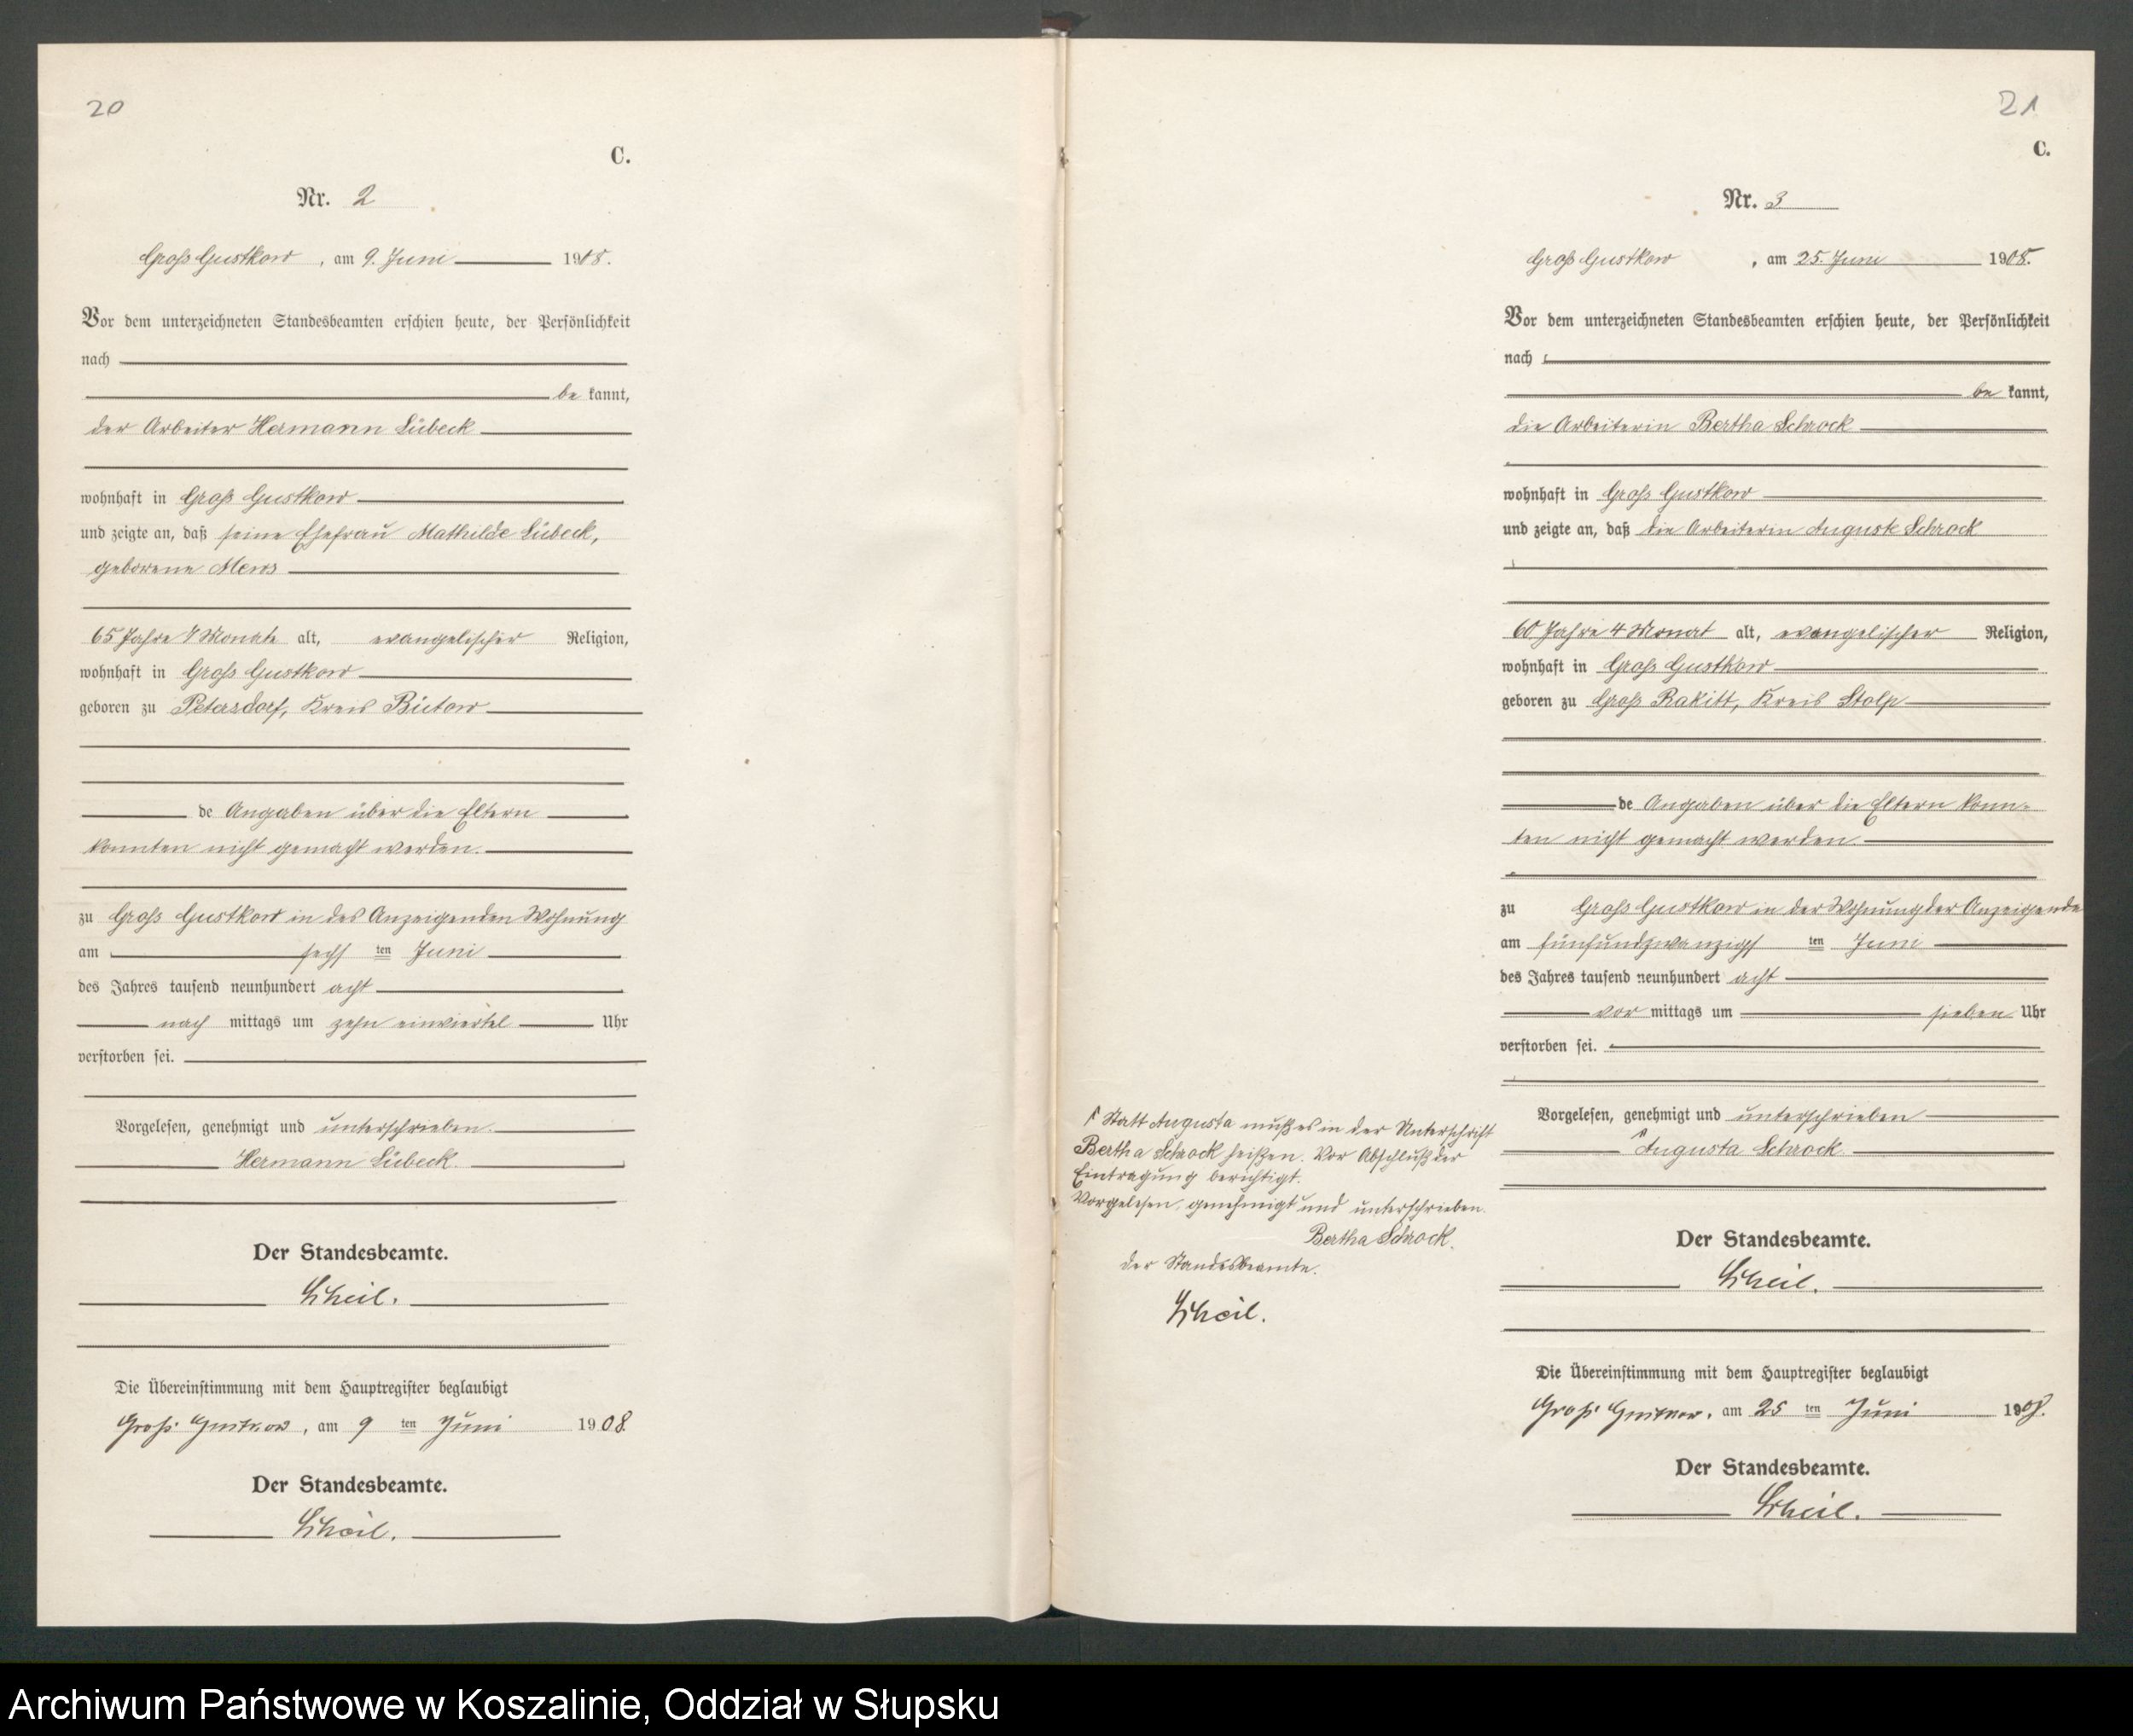 20
C.
Nr. 2
Groß Gustkow, am 9. Juni 1908.
Vor dem unterzeichneten Standesbeamten erschien heute, der Persönlichkeit
nach
be kannt,
der Arbeiter Hermann Lübeck
wohnhaft in Groß Gustkow
und zeigte an, daß seine Ehefrau Mathilde Lübeck,
geborene Mews
65 Jahre 4 Monate alt, evangelischer Religion,
wohnhaft in Groß Gustkow
geboren zu Petersdorf, Kreis Bütow
de Angaben über die Eltern
konnten nicht gemacht werden.
zu Groß Gustkow in des Anzeigenden Wohnung
am sechs ten Juni
des Jahres tausend neunhundert acht
nach mittags um zehn einviertel Uhr
verstorben sei.
Vorgelesen, genehmigt und unterschrieben.
Hermann Lübeck.
Der Standesbeamte.
Scheil.
Die Übereinstimmung mit dem Hauptregister beglaubigt
Groß Gustkow, am 9 ten Juni 1908.
Der Standesbeamte.
Scheil.
21
C.
Nr. 3
Groß Gustkow, am 25. Juni 1908.
Vor dem unterzeichneten Standesbeamten erschien heute, der Persönlichkeit
nach
be kannt,
die Arbeiterin Bertha Schrock
wohnhaft in Groß Gustkow
und zeigte an, daß die Arbeiterin Auguste Schrock
60 Jahre 4 Monat alt, evangelischer Religion,
wohnhaft in Groß Gustkow
geboren zu Groß Rakitt, Kreis Stolp
de Angaben über die Eltern konn-
ten nicht gemacht werden.
zu Groß Gustkow in der Wohnung der Anzeigende
am fünfundzwanzigs ten Juni
des Jahres tausend neunhundert acht
vor mittags um sieben Uhr
verstorben sei.
Vorgelesen, genehmigt und unterschrieben
Augusta Schrock.
Der Standesbeamte.
Scheil.
Die Übereinstimmung mit dem Hauptregister beglaubigt
Groß Gustkow, am 25 ten Juni 1908.
Der Standesbeamte.
Scheil.
Statt Augusta muß es in der Unterschrift
Bertha Schrock heißen. Vor Abschluß der
Eintragung berichtigt.
Vorgelesen, genehmigt und unterschrieben.
Bertha Schrock.
der Standesbeamte.
Scheil.
Archiwum Państwowe w Koszalinie, Oddział w Słupsku